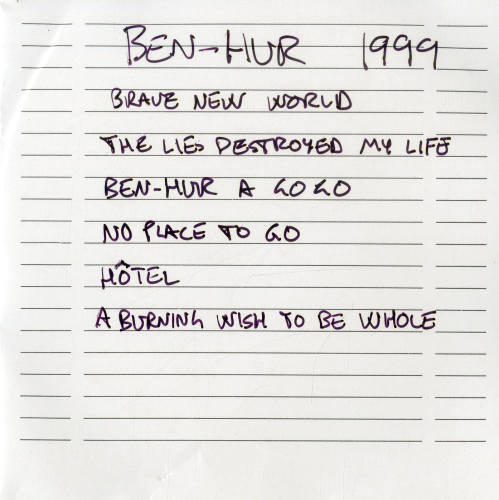 BEN-HUR 1999
BRAVE NEW WORLD
THE LIES DESTROYED MY LIFE
BEN-HUR A GO GO
NO PLACE TO GO
HÔTEL
A BURNING WISH TO BE WHOLE